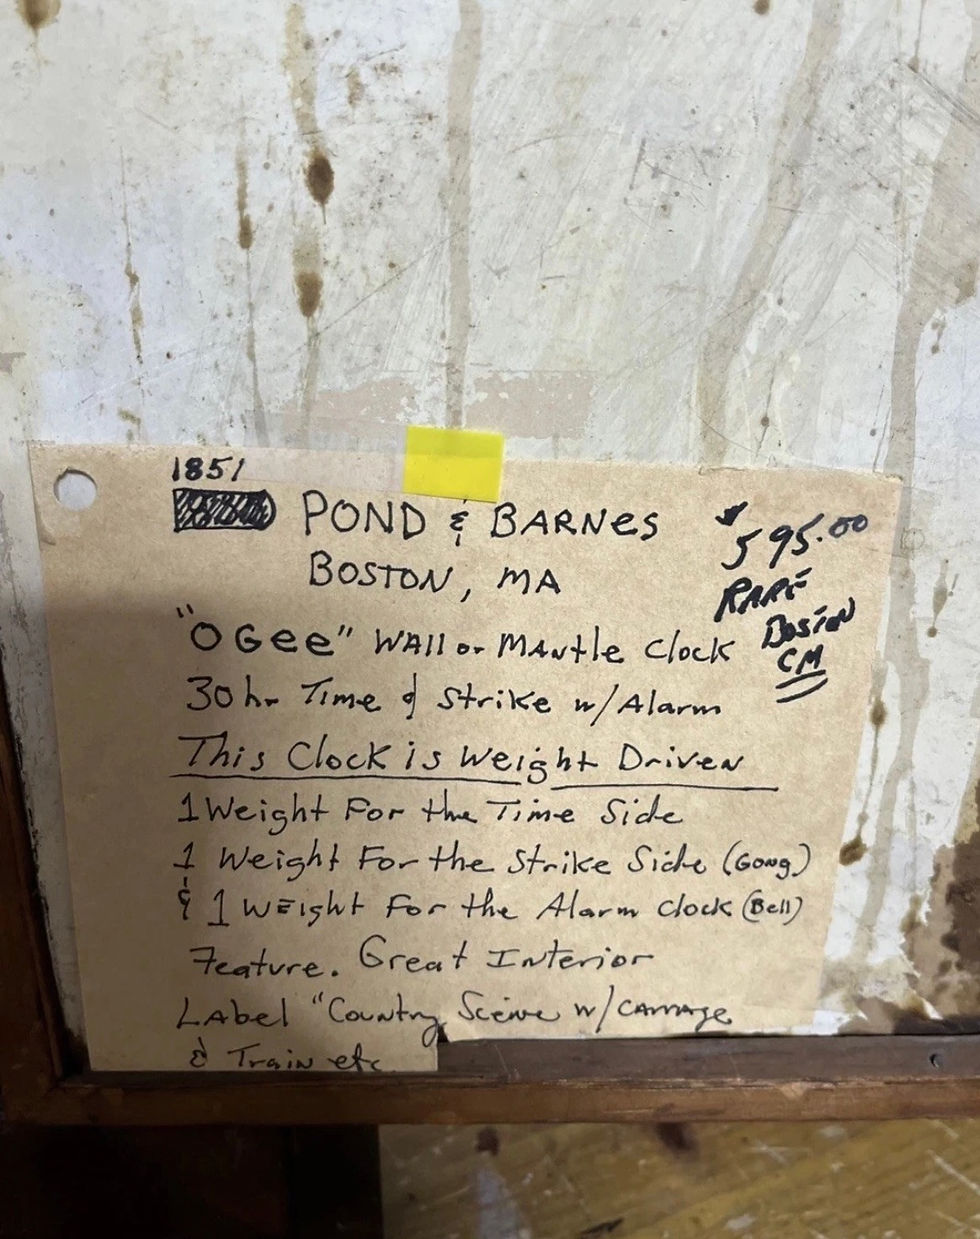 1851
POND & BARNES
BOSTON, MA
$595.00
RARE
BOSTON
CM
"OGee" WALL or MANtle Clock
30 hr Time & Strike w/Alarm
This Clock is Weight Driven
1 Weight For the Time Side
1 Weight For the Strike Side (Gong)
& 1 Weight For the Alarm clock (Bell)
Feature. Great Interior
Label "Country Scene w/carriage
& Train etc